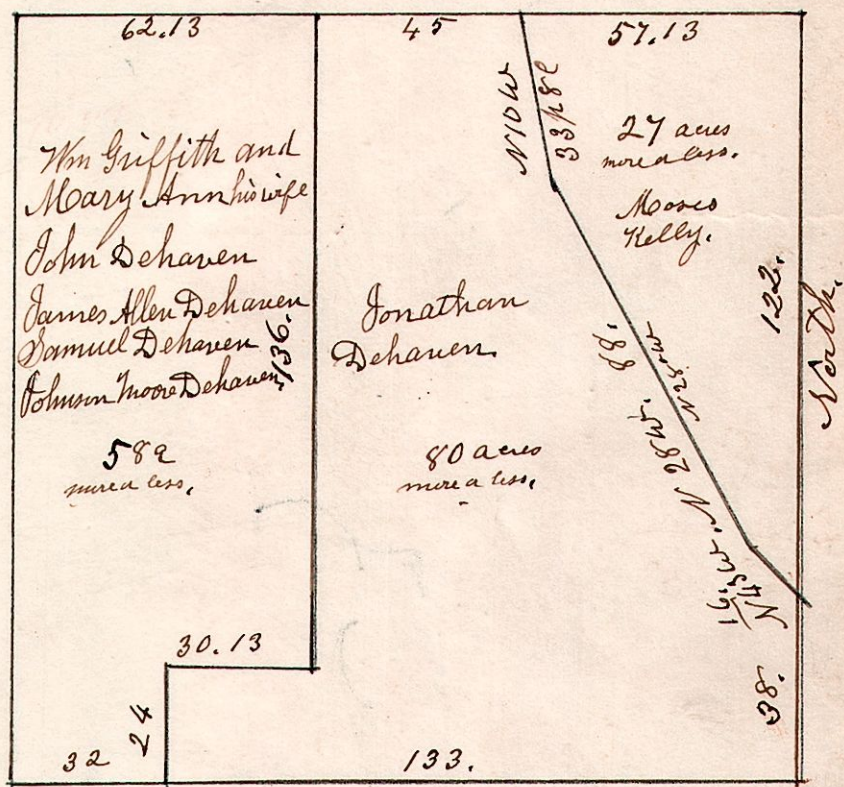 62.13
45
57.13
Wm Griffith and
Mary Ann his wife
John Dehaven
James Allen Dehaven
Samuel Dehaven
Johnson Moore Dehaven
136.
58a
more a less,
30.13
24
32
Jonathan
Dehaven
80 acres
more a less,
133.
N10W
33p8l
27 acres
more a less.
Moses
Kelly.
N 28 W. 88.
N 28 W
16.
N43W
122.
38.
North.